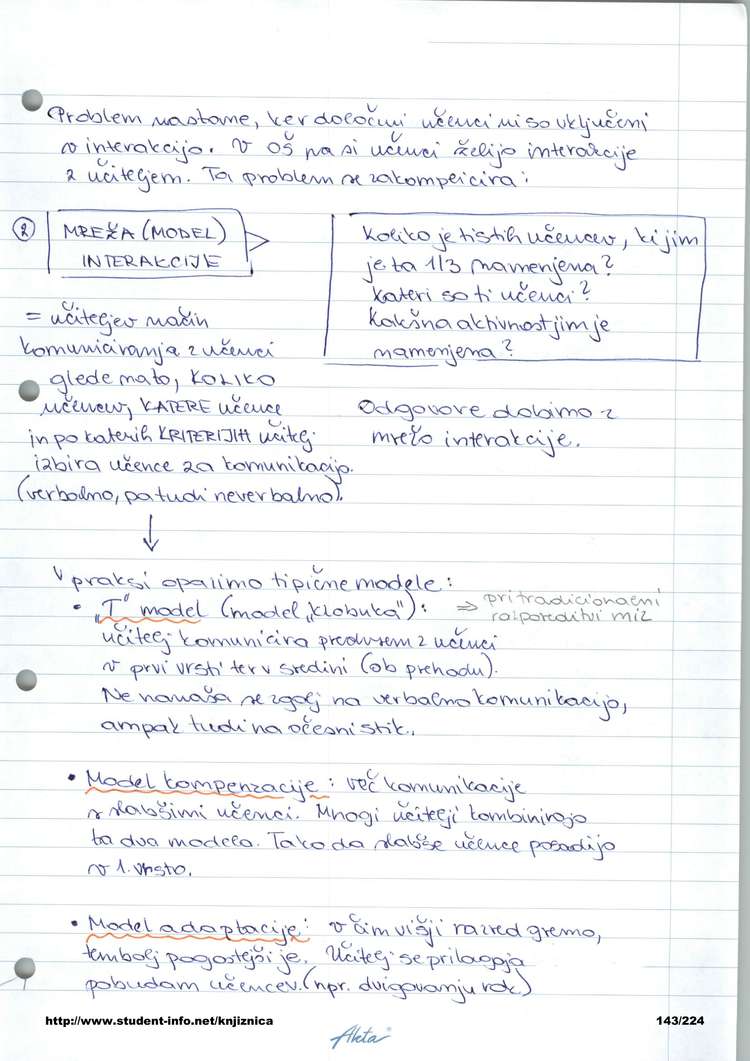 Problem nastane, ker določeni učenci niso vključeni
v interakcijo. V OŠ pa si učenci želijo interakcije
z učiteljem. Ta problem se zakomplicira:
② MREŽA (MODEL)
INTERAKCIJE
Koliko je tistih učencev, ki jim
je ta 1/3 namenjena?
Kateri so ti učenci?
Kakšna aktivnost jim je
namenjena?
= učiteljev način
komuniciranja z učenci
glede na to, KOLIKO
učencev, KATERE učence
in po katerih KRITERIJIH učitelj
izbira učence za komunikacijo.
(verbalno, pa tudi neverbalno).
Odgovore dobimo z
mrežo interakcije.
↓
V praksi opazimo tipične modele:
• „T" model (model „klobuka"): ⇒ pri tradicionalni
razporeditvi miz
učitelj komunicira predvsem z učenci
v prvi vrsti ter v sredini (ob prehodu).
Ne nanaša se zgolj na verbalno komunikacijo,
ampak tudi na očesni stik.
• Model kompenzacije: več komunikacije
s slabšimi učenci. Mnogi učitelji kombinirajo
ta dva modela. Tako da slabše učence posadijo
v 1. vrsto.
• Model adaptacije: v čim višji razred gremo,
tembolj pogostejši je. Učitelj se prilagaja
pobudam učencev. (npr. dvigovanju rok)
http://www.student-info.net/knjiznica
143/224
Akta